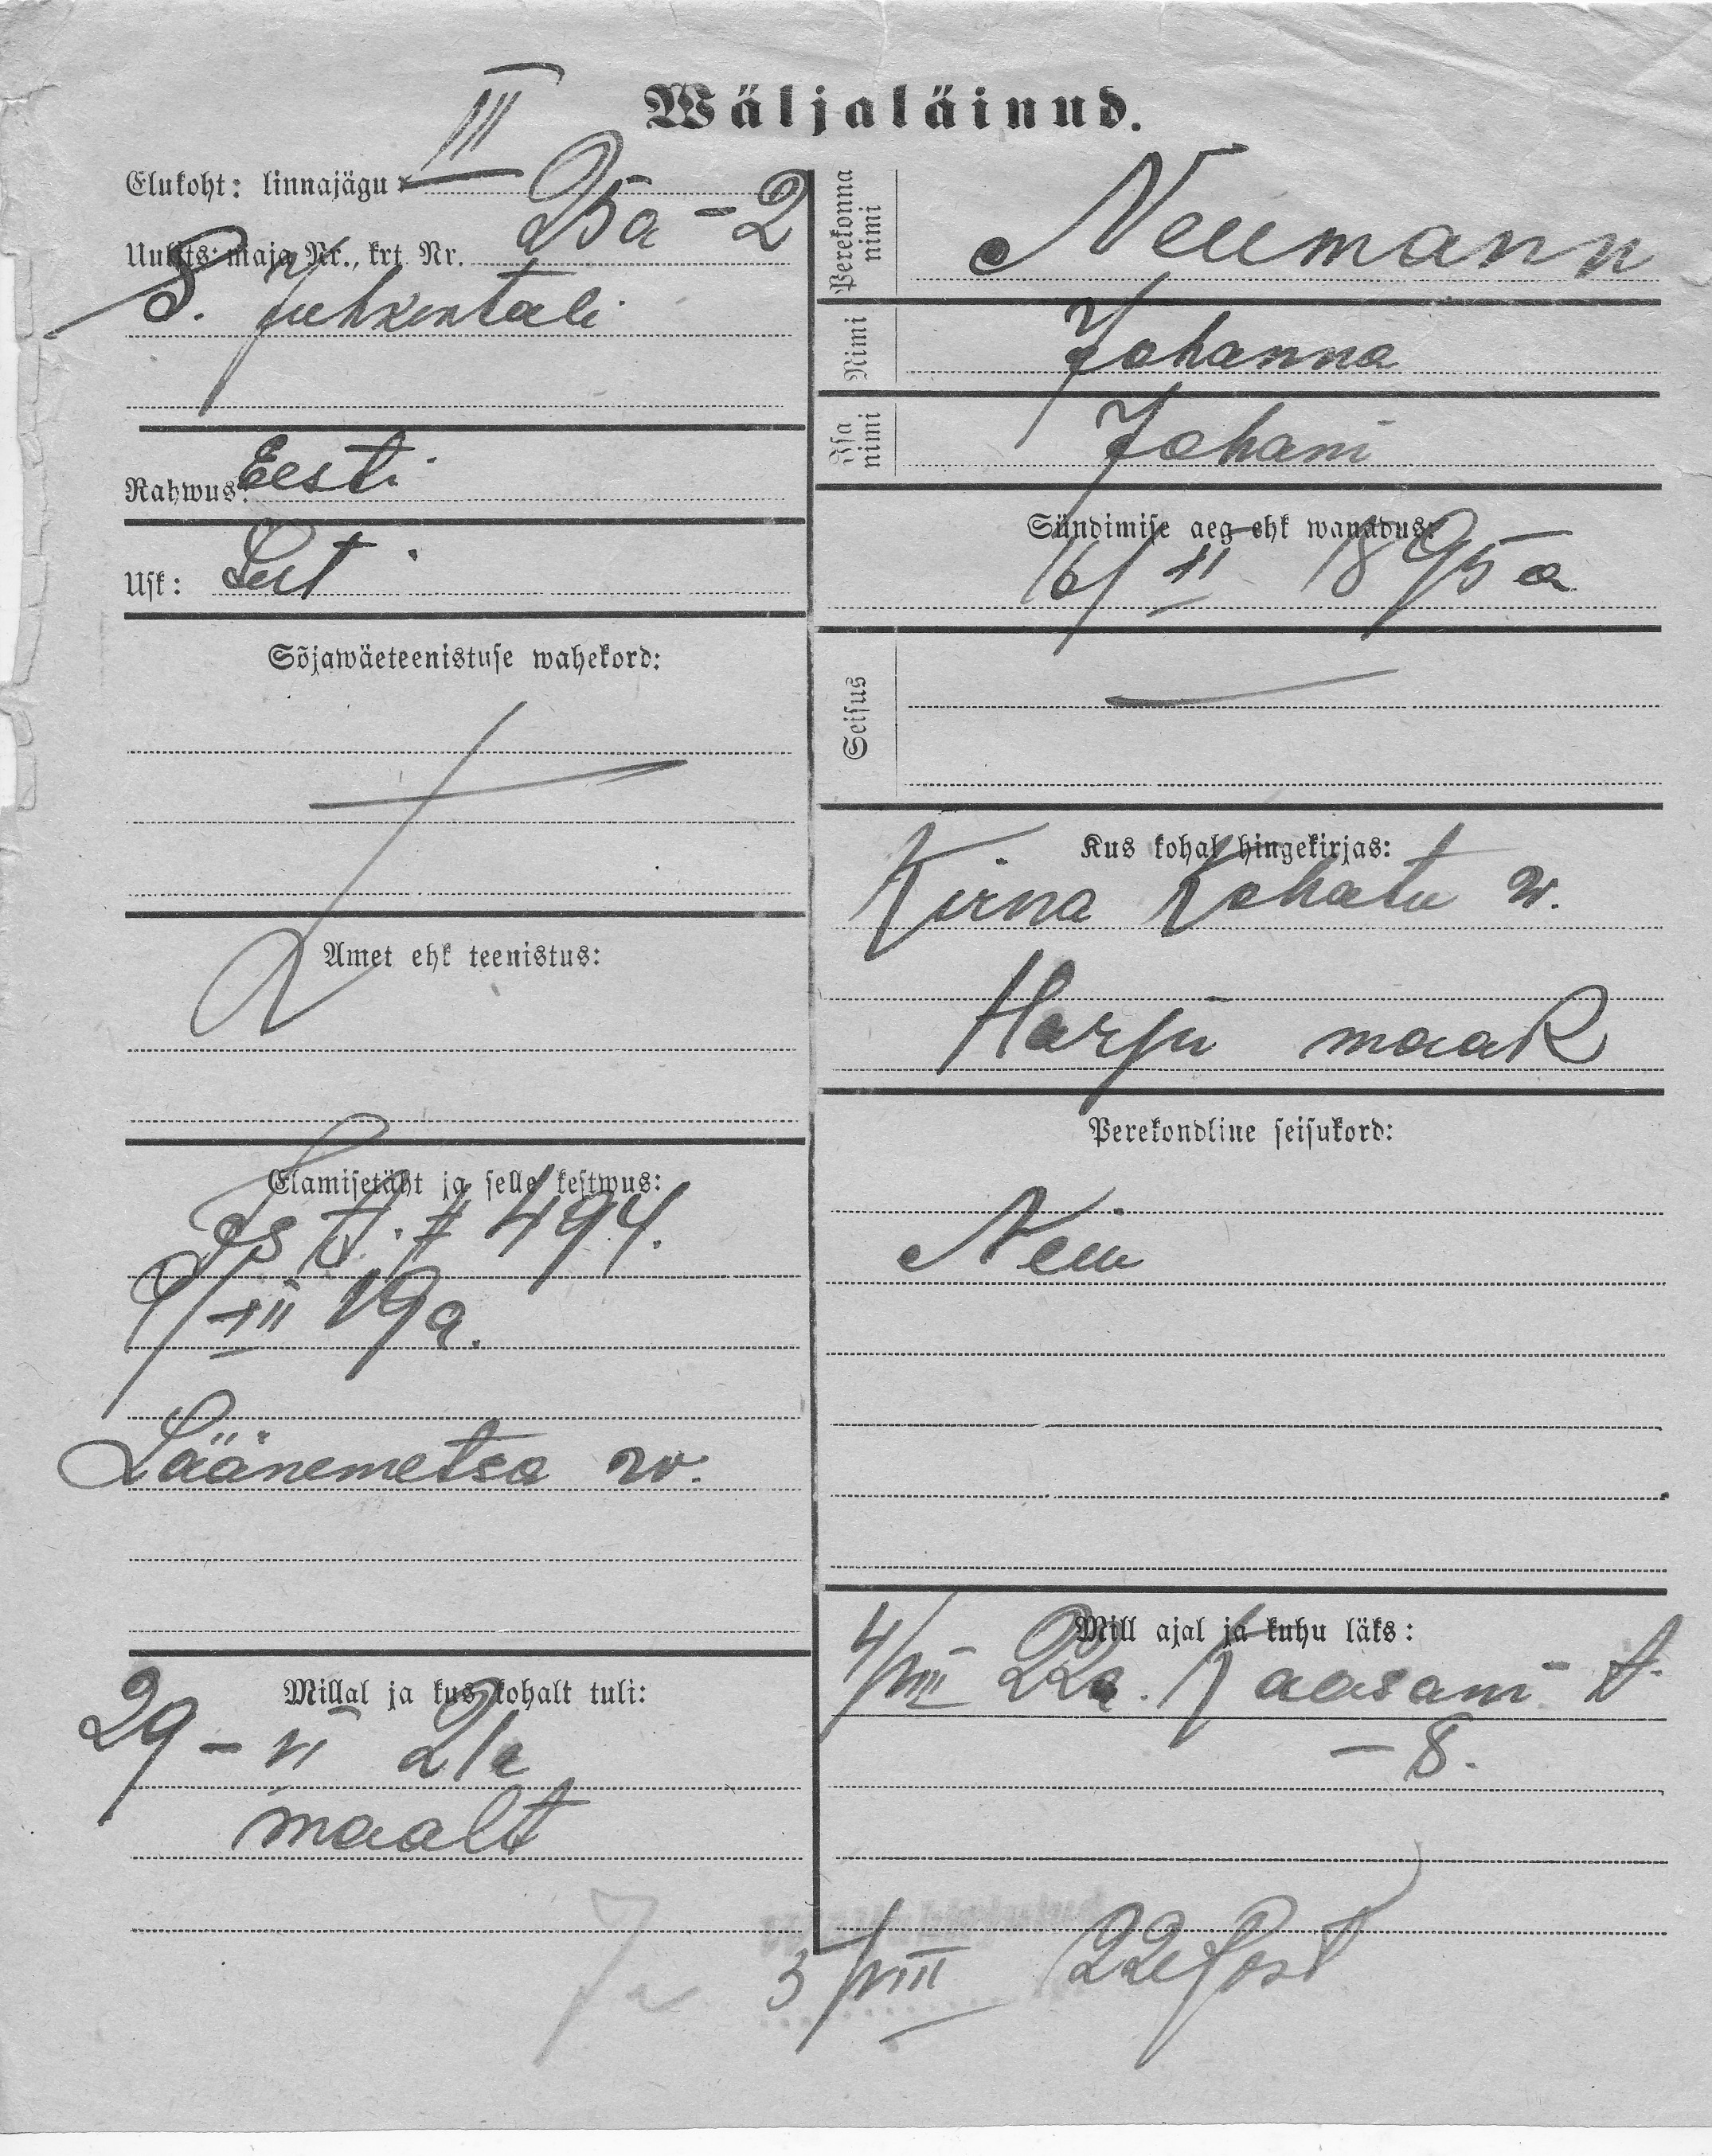 Wäljaläinud.
Elukoht: linnajägu III
Uulits: maja Nr., krt Nr. 25a - 2
S. Juhkentali
Rahwus: Eesti
Usk: Lut.
Sõjawäeteenistuse wahekord:
Amet ehk teenistus:
Elamisetäht ja selle kestwus:
494.
9/XII 19a.
Läänemetsa w.
Millal ja kus kohalt tuli:
29 - VI 21a
maalt
Perekonna nimi Neumann
Nimi Johanna
Isa nimi Johani
Sündimise aeg ehk wanadus:
16/II 1895 a
Seisus
Kus kohal hingekirjas:
Kirna Kohatu w.
Harju maak
Perekondline seisukord:
Neiu
Mill ajal ja kuhu läks:
4/VIII 22a. Kaasani t.
- 8.
5/VIII 22